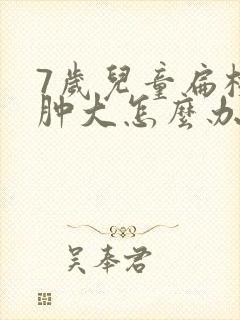 7歲兒童扁桃
肿大怎麼办
吴奉君